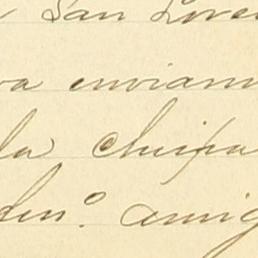 San Lore
va enviarm
la chispa
den.° amig